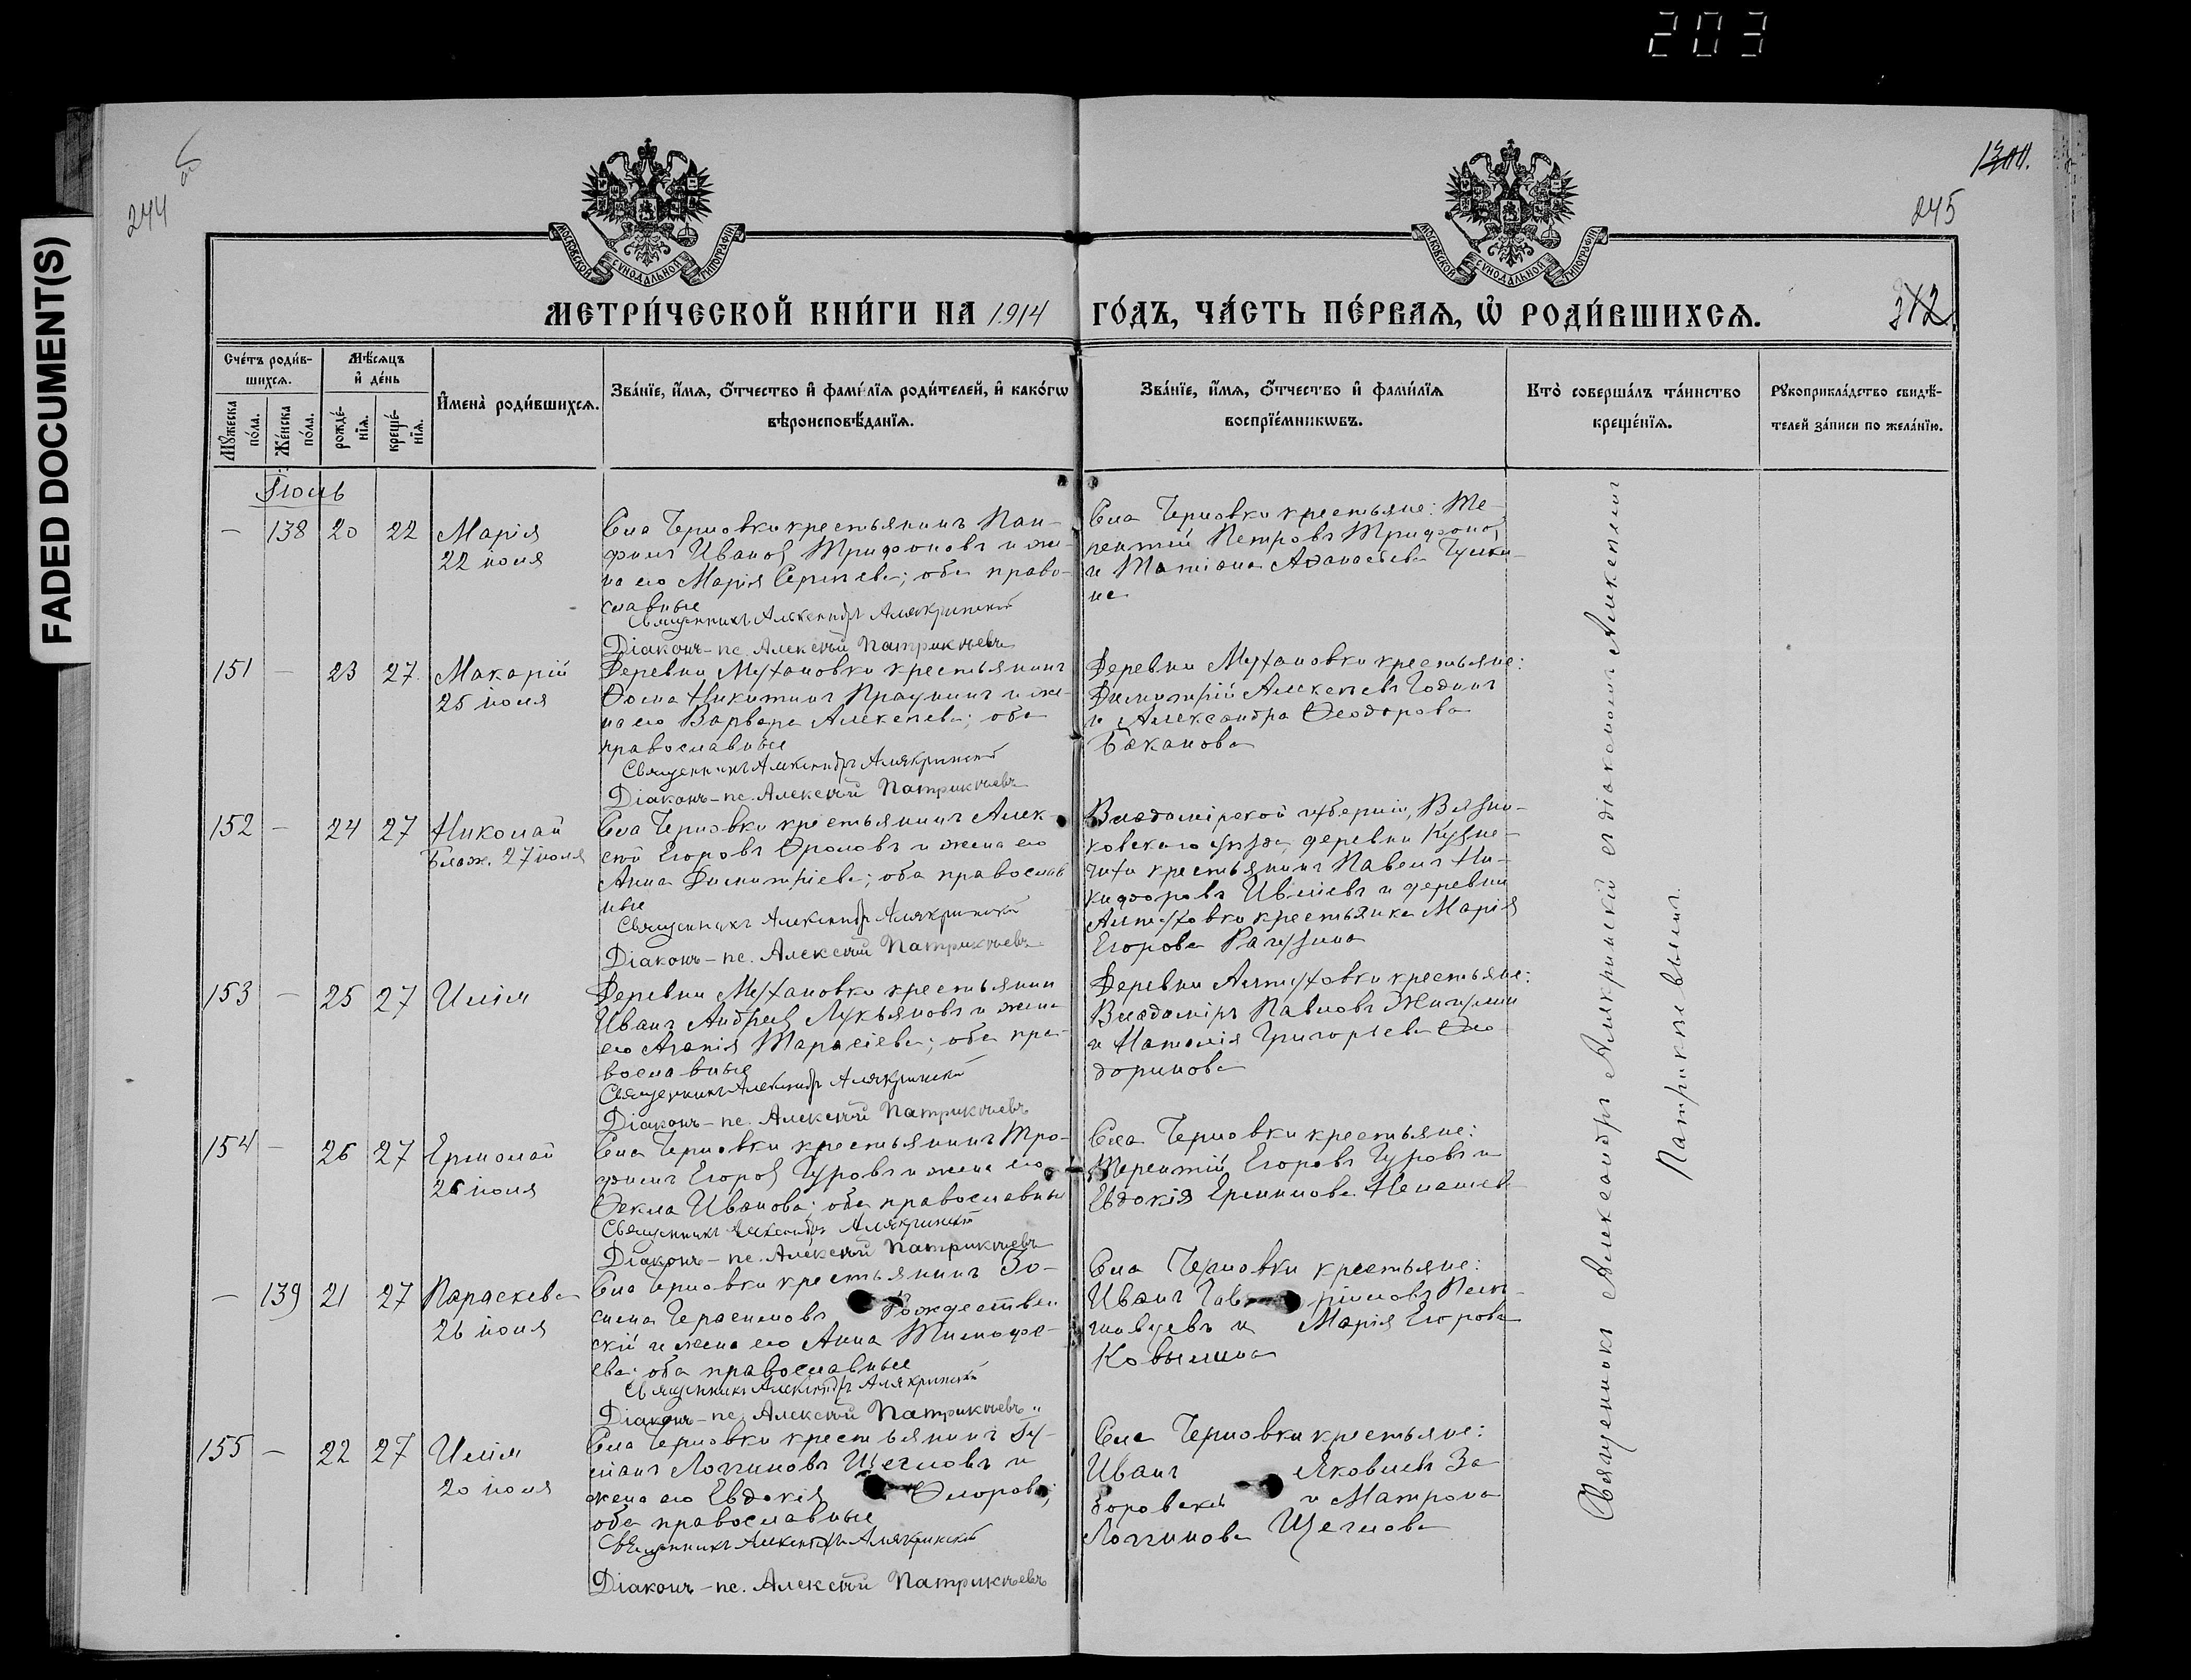 203
FADED DOCUMENT(S)
244
245
МОСКОВСКОЙ СѴНОДАЛЬНОЙ ТИПОГРАФІИ
МОСКОВСКОЙ СѴНОДАЛЬНОЙ ТИПОГРАФІИ
МЕТРИ́ЧЕСКОЙ КНИ́ГИ НА 1914 ГО́ДЪ, ЧА́СТЬ ПЕ́РВАѦ, Ѡ҆ РОДИ́ВШИХСѦ.
312
Сче́тъ роди́в-
шихсѧ.
Мꙋ́жеска
по́ла.
Же́нска
по́ла.
Мѣ́сѧцъ
и҆ де́нь
рожде́-
нїѧ.
креще́-
нїѧ.
И҆мена̀ роди́вшихсѧ.
Зва́нїе, и҆́мѧ, ѻ҆́тчество и҆ фами́лїѧ роди́телей, и҆ како́гѡ
вѣроисповѣ́данїѧ.
Зва́нїе, и҆́мѧ, ѻ҆́тчество и҆ фами́лїѧ
воспрїе́мникѡвъ.
Кто̀ соверша́лъ та́инство
креще́нїѧ.
Рꙋкоприкла́дство свидѣ́-
телей за́писи по жела́нїю.
Іюль
— 138 20 22 Марія
22 іюля
Села Черновки крестьянинъ Пан-
филъ Ивановъ Трифоновъ и же-
на его Марія Сергѣева; оба право-
славные
Священникъ Александръ Алякринскій
Діаконъ-пс. Алексѣй Патрикѣевъ
Села Черновки крестьяне: Те-
рентій Петровъ Трифоновъ
и Татіана Аѳанасьева
151 — 23 27 Макарій
25 іюля
Деревни Мухановки крестьянинъ
Ѳома Никитинъ и же-
на его Варвара Алексѣева; оба
православные
Священникъ Александръ Алякринскій
Діаконъ-пс. Алексѣй Патрикѣевъ
Деревни Мухановки крестьяне:
Димитрій Алексѣевъ Годинъ
и Александра Ѳеодорова
Баканова
152 — 24 27 Николай
Блаж. 27 іюля
Села Черновки крестьянинъ Алек-
сѣй Егоровъ Фроловъ и жена его
Анна Димитріева; оба православ
ные
Священникъ Александръ Алякринскій
Діаконъ-пс. Алексѣй Патрикѣевъ
Владимірской губерніи, Вязни-
ковскаго уѣзда, деревни
крестьянинъ Павелъ Ни-
кифоровъ и деревни
крестьянка Марія
Егорова Рагузина
153 — 25 27 Илія
Деревни Мухановки крестьянинъ
Иванъ Андреевъ Лукьяновъ и жена
его Агапія Тарасіева; оба пра-
вославные
Священникъ Александръ Алякринскій
Діаконъ-пс. Алексѣй Патрикѣевъ
Деревни крестьяне:
Владиміръ Павловъ Жигулин
и Наталія Григорьева Ѳео-
доринова
154 — 26 27 Ермолай
26 іюля
Села Черновки крестьянинъ Тро-
фимъ Егоровъ Гуровъ и жена его
Ѳекла Иванова; оба православные
Священникъ Александръ Алякринскій
Діаконъ-пс. Алексѣй Патрикѣевъ
Села Черновки крестьяне:
Терентій Егоровъ Гуровъ и
Евдокія Ермилова
— 139 21 27 Параскева
26 іюля
Села Черновки крестьянинъ Зо-
сима Герасимовъ Рождествен
скій и жена его Анна Тимофе-
ева; оба православные
Священникъ Александръ Алякринскій
Діаконъ-пс. Алексѣй Патрикѣевъ
Села Черновки крестьяне:
Иванъ Гавріиловъ
и Марія Егорова
Ковылина
155 — 22 27 Илія
20 іюля
Села Черновки крестьянинъ Іу-
ліанъ Логгиновъ Щегловъ и
жена его Евдокія Флорова;
оба православные
Священникъ Александръ Алякринскій
Діаконъ-пс. Алексѣй Патрикѣевъ
Села Черновки крестьяне:
Иванъ Яковлевъ За
боровскій и Матрона
Логгинова Щеглова
Священникъ Александръ Алякринскій съ діакономъ Алексѣемъ
Патрикѣевымъ.